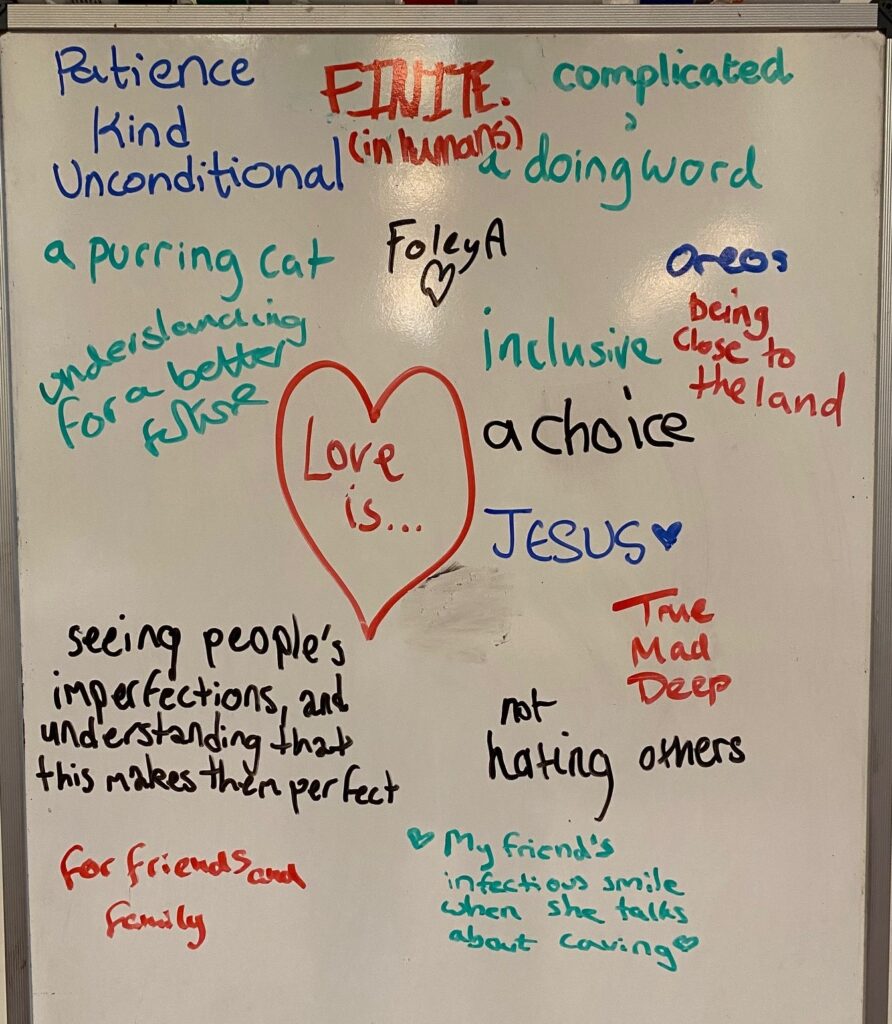 Patience
Kind
Unconditional
FINITE.
(in humans)
complicated
a doing word
a purring cat
FoleyA
Oreos
understanding
for a better
future
inclusive
being
close to
the land
a choice
Love
is...
JESUS
True
Mad
Deep
seeing people's
imperfections, and
understanding that
this makes them perfect
not
hating others
for friends and
family
My friend's
infectious smile
when she talks
about caving